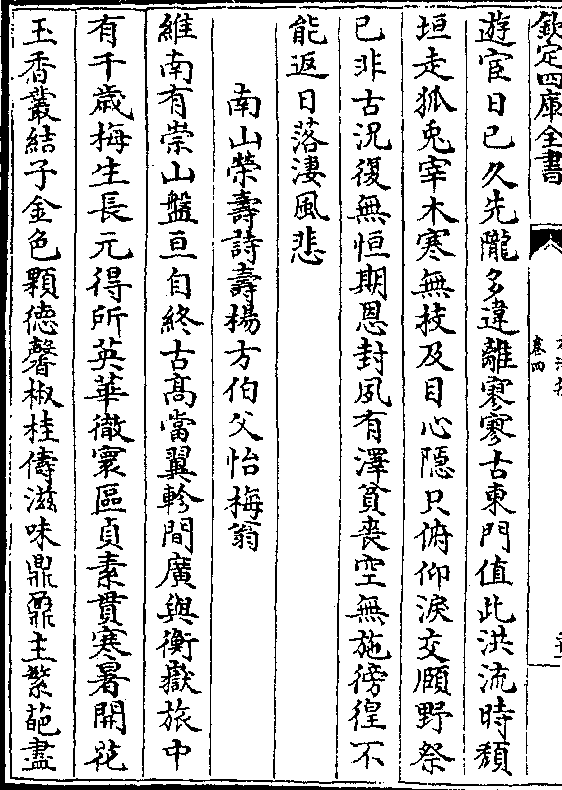 欽定四庫全書
卷四
遊宦日已久先隴多違離寥寥古東門值此洪流時頽
垣走狐兎宰木寒無枝及目心隱只俯仰淚交頤野祭
已非古况復無恒期恩封夙有澤貧喪空無施徬徨不
能返日落淒風悲
南山榮壽詩壽楊方伯父怡梅翁
維南有崇山盤亘自終古髙當翼軫間廣與衡嶽旅中
有千歲梅生長元得所英華徹寰區貞素貫寒暑開花
玉香叢結子金色顆德馨椒桂儔滋味鼎鼐主繁葩盡